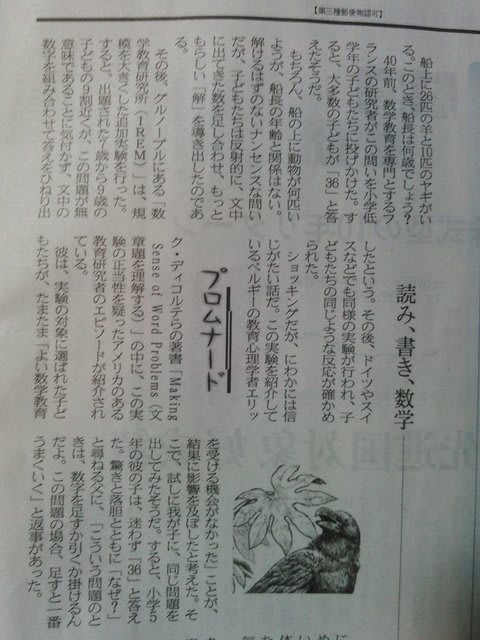 【第三種郵便物認可】
読み、書き、数学
プロムナード
船上に26匹の羊と10匹のヤギがい
る。このとき、船長は何歳でしょう？
40年前、数学教育を専門とするフ
ランスの研究者がこの問いを小学低
学年の子どもたちに投げかけた。す
ると、大多数の子どもが「36」と答
えたそうだ。
もちろん、船の上に動物が何匹い
ようが、船長の年齢と関係はない。
解けるはずのないナンセンスな問い
だが、子どもたちは反射的に、文中
に出てきた数を足し合わせ、もっと
もらしい「解」を導き出したのであ
る。
その後、グルノーブルにある「数
学教育研究所（IREM）」は、規
模を大きくした追加実験を行った。
すると、出題された7歳から9歳の
子どもの9割近くが、この問題が無
意味であることに気付かず、文中の
数字を組み合わせて答えをひねり出
したという。その後、ドイツやスイ
スなどでも同様の実験が行われ、子
どもたちの同じような反応が確かめ
られた。
ショッキングだが、にわかには信
じがたい話だ。この実験を紹介して
いるベルギーの教育心理学者エリッ
ク・ディコルテらの著書「Making
Sense of Word Problems（文
章題を理解する）」の中に、この実
験の正当性を疑ったアメリカのある
教育研究者のエピソードが紹介され
ている。
彼は、実験の対象に選ばれた子ど
もたちが、たまたま「よい数学教育
を受ける機会がなかった」ことが、
結果に影響を及ぼしたと考えた。そ
こで、試しに我が子に、同じ問題を
出してみたそうだ。すると、小学5
年の彼の子は、迷わず「36」と答え
た。驚きと落胆とともに「なぜ？」
と尋ねる父に、「こういう問題のと
きは、数字を足すか引くか掛けるん
だよ。この問題の場合、足すと一番
うまくいく」と返事があった。